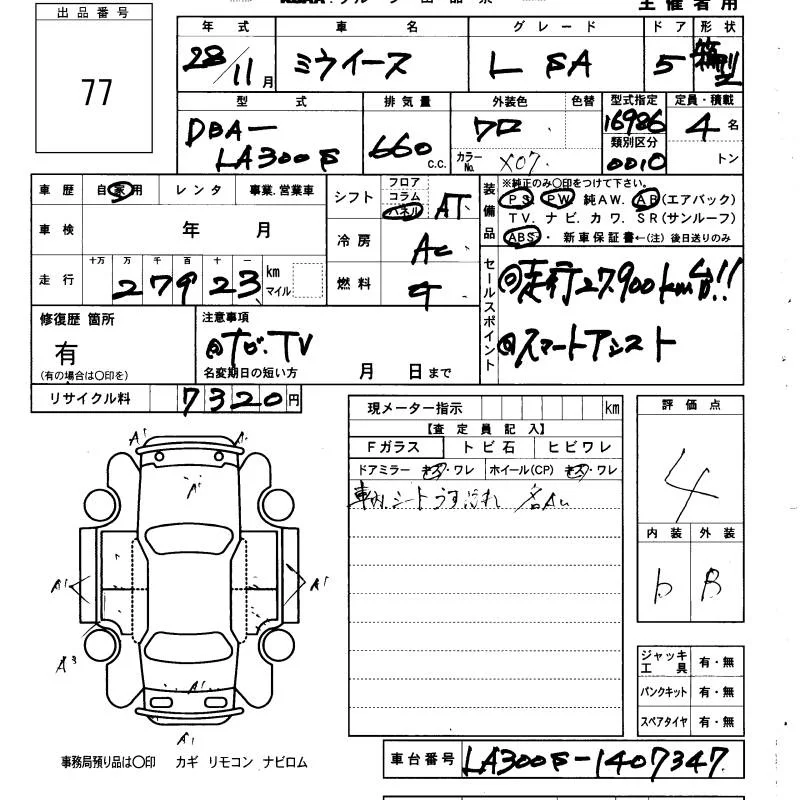 主催者用
出品番号
77
年式 車名 グレード ドア 形状
28/11月 ミライース L SA 5 箱型
型式 排気量 外装色 色替 型式指定 定員・積載
DBA-LA300S 660 c.c. クロ カラーNo. X07 16986 4名
類別区分
0010 トン
車歴 自家用 レンタ 事業.営業車
シフト フロア コラム パネル AT
装備品 ※純正のみ○印をつけて下さい。
PS PW 純AW. AB(エアバック)
TV. ナビ. カワ. SR(サンルーフ)
ABS・ 新車保証書←(注) 後日送りのみ
車検 年 月
冷房 AC
走行 十万 万 千 百 十 一 km マイル
27923
燃料
セールスポイント
◎走行27.900km台!!
◎スマートアシスト
修復歴 箇所
有
(有の場合は○印を)
注意事項
ナビ.TV
名変期日の短い方 月 日まで
リサイクル料 7320円
現メーター指示 km
【査定員記入】
Fガラス トビ石 ヒビワレ
ドアミラー キズ・ワレ ホイール(CP) キズ・ワレ
車内.シートうすよごれ
評価点
4
内装 外装
b B
A1 A1
A1
A1 A1
A3
A1
A1
ジャッキ工具 有・無
パンクキット 有・無
スペアタイヤ 有・無
事務局預り品は○印 カギ リモコン ナビロム
車台番号 LA300S-1407347